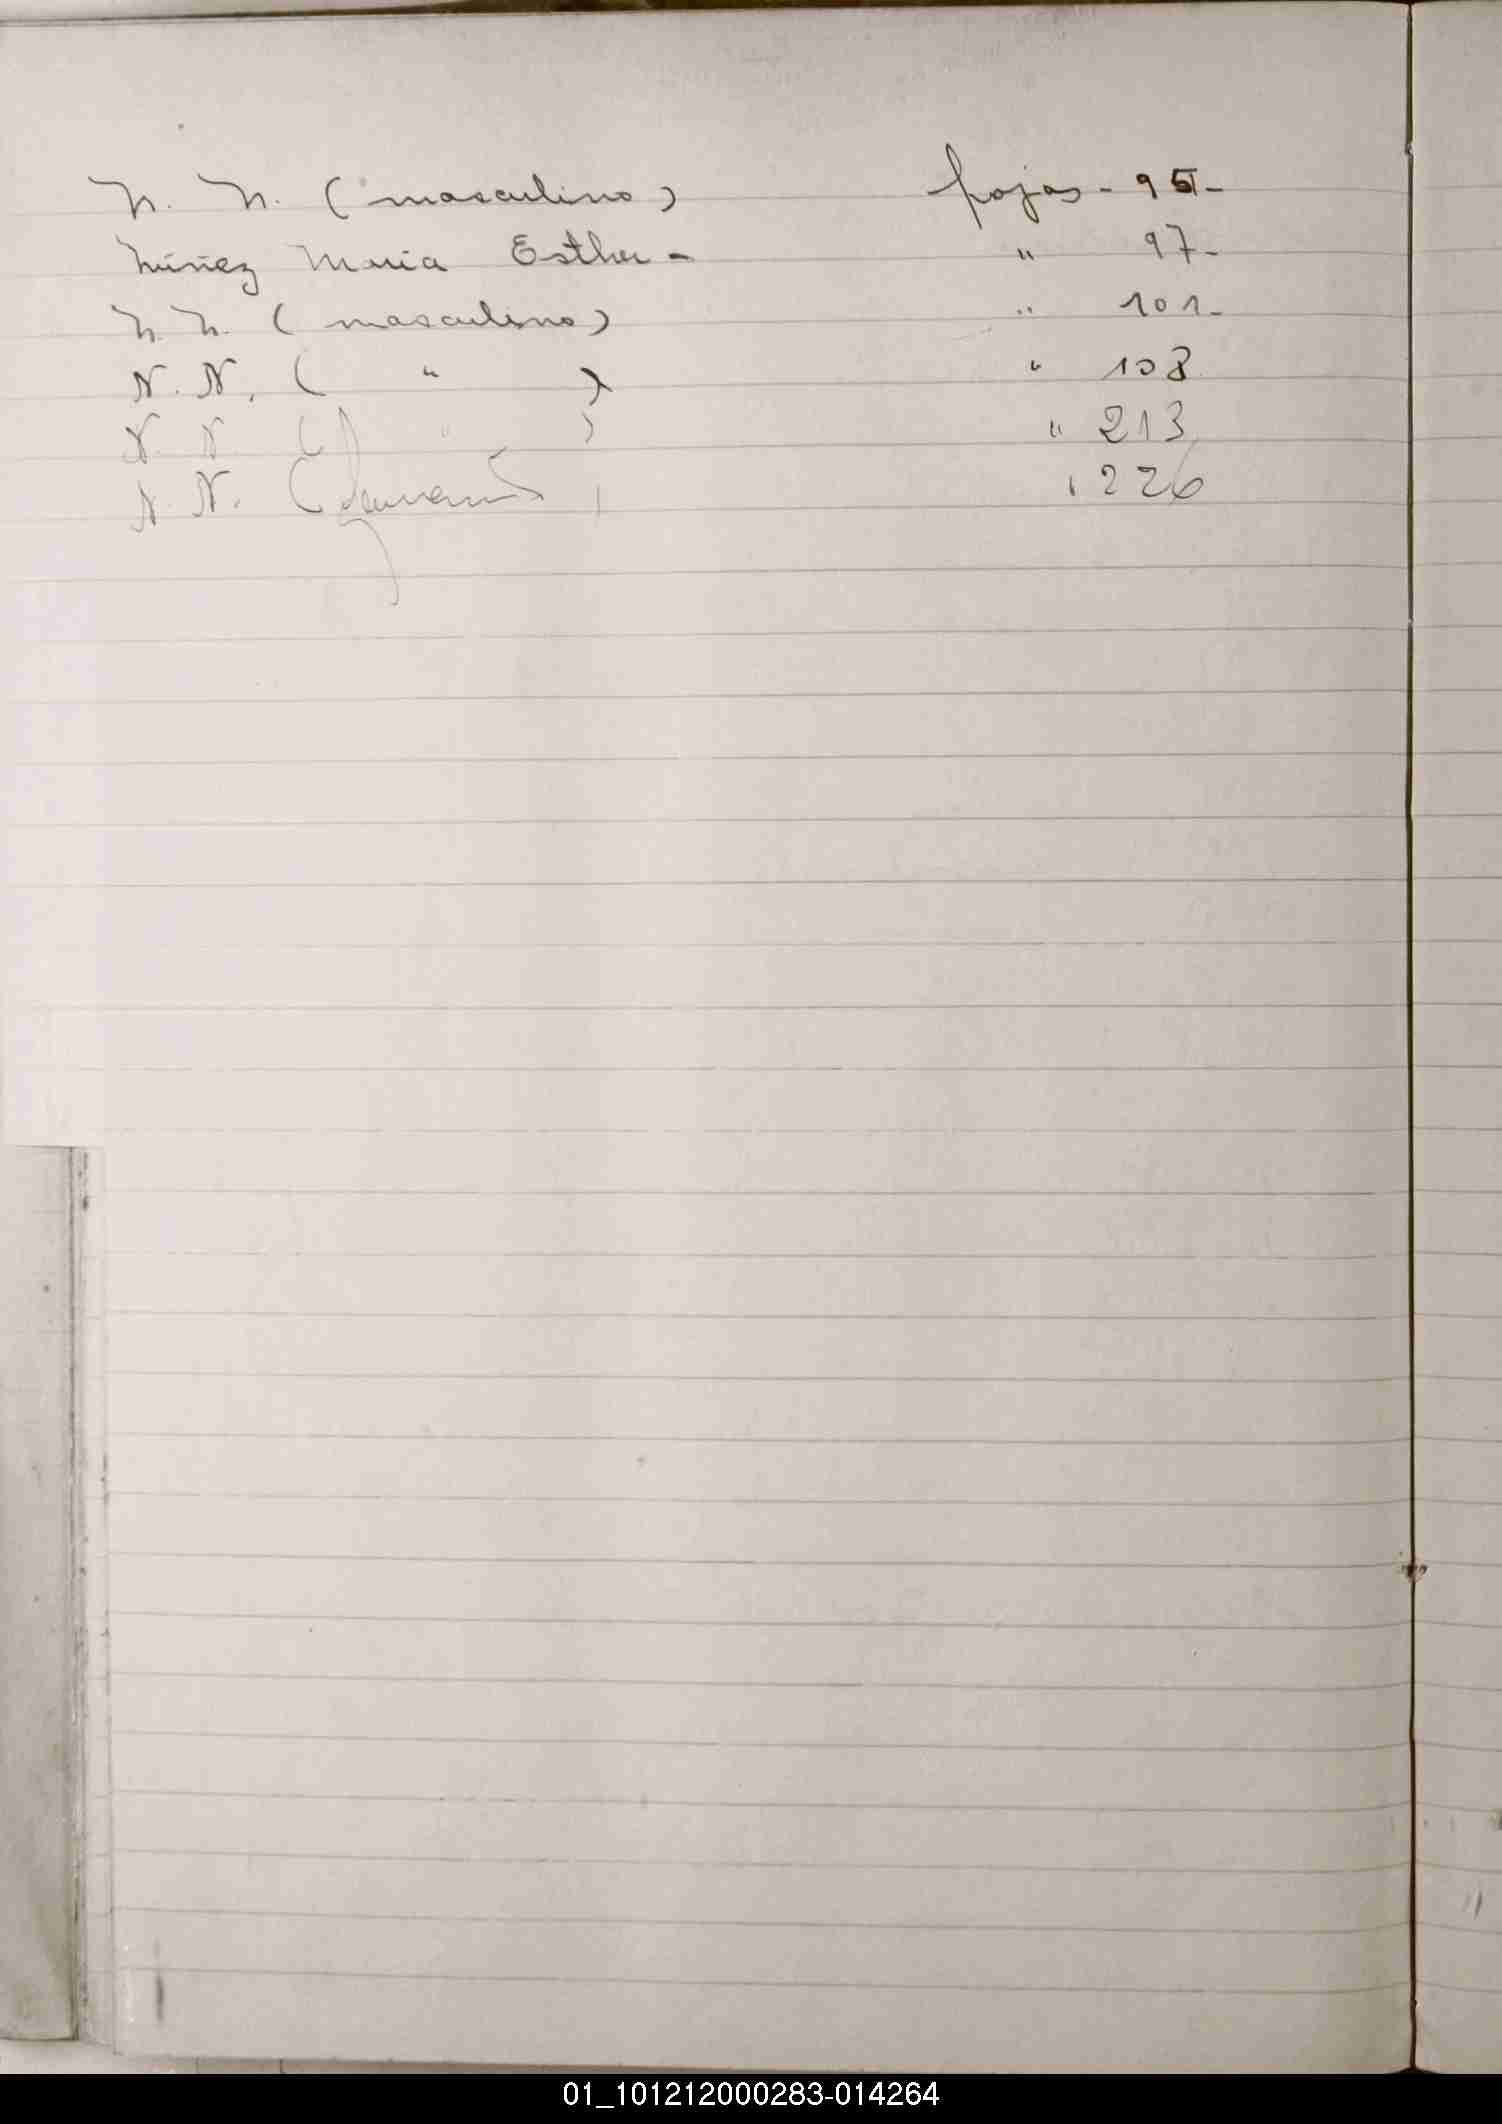 N. N. (masculino) fojas - 95 -
Núñez Maria Esther - " 97 -
N. N. (masculino) " 101 -
N. N. ( " ) " 108
N. N ( " ) " 213
N. N. ( " 226
01_101212000283-014264